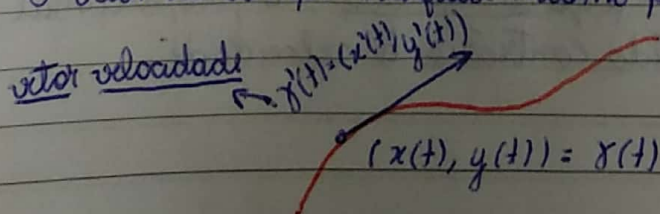 vetor velocidade
γ'(t) = (x'(t), y'(t))
(x(t), y(t)) = γ(t)